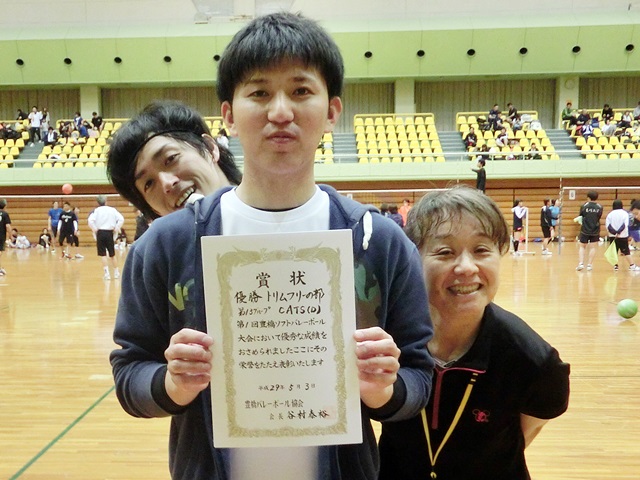 賞状
優勝 トリムフリーの部
第13グループ CATS(D)
第1回豊橋ソフトバレーボール
大会において優秀な成績を
おさめられましたここにその
栄誉をたたえ表彰いたします
平成29年5月3日
豊橋バレーボール協会
会長 谷村泰裕